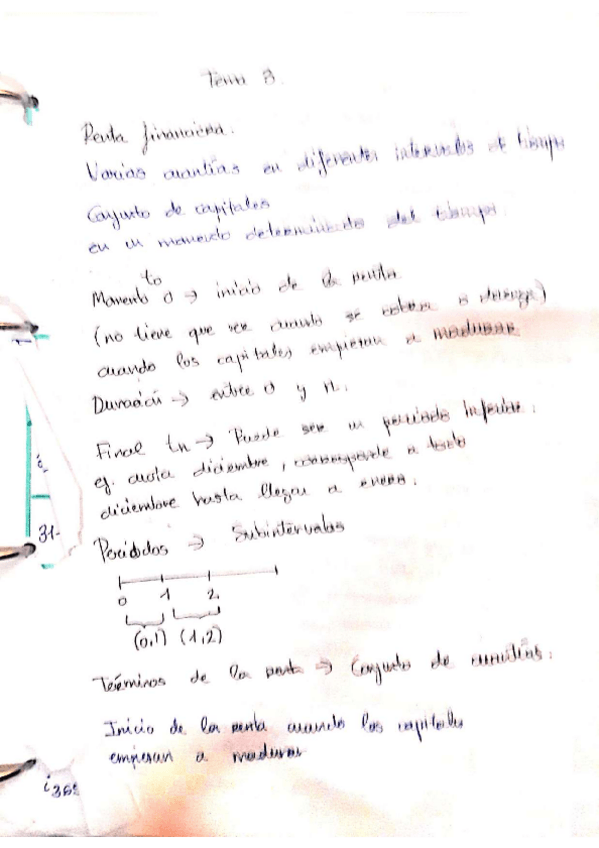 Tema 8.
Renta financiera.
Varias cuantías en diferentes intervalos de tiempo
Conjunto de capitales
en un momento determinado del tiempo.
Momento t0 0 → inicio de la renta
(no tiene que ver cuando se cobra o devenga)
cuando los capitales empiezan a madurar
Duración → entre 0 y n.
Final tn → Puede ser un periodo
ej. cuota diciembre, corresponde a todo
diciembre hasta llegar a enero.
31-
Periodos → Subintervalos
0 1 2
(0,1) (1,2)
Términos de la renta → Conjunto de cuantías.
Inicio de la renta cuando los capitales
empiezan a madurar
i365